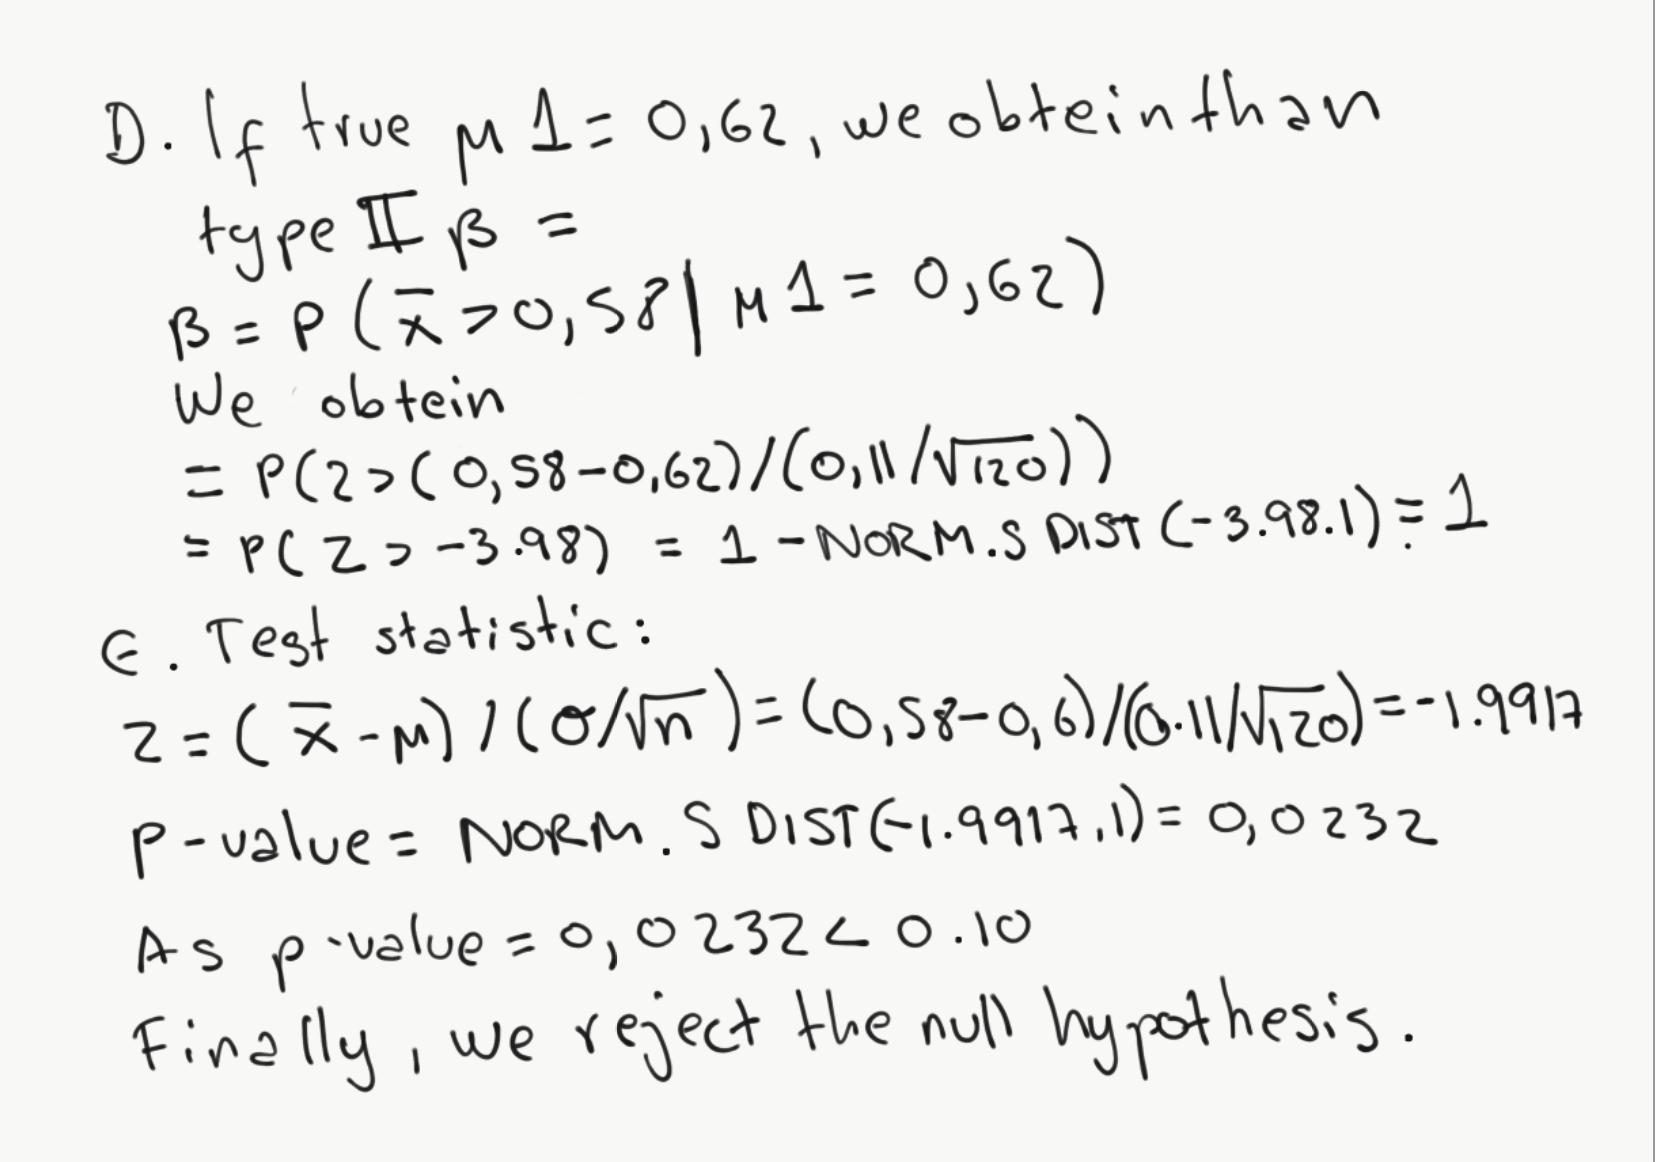 D. If true μ1 = 0,62, we obtein than
type II β =
β = P(x̄ > 0,58 | μ1 = 0,62)
We obtein
= P(z > (0,58-0,62)/(0,11/√120))
= P(z > -3.98) = 1 - NORM.S DIST(-3.98.1) = 1
E. Test statistic:
z = (x̄ - μ) / (σ/√n) = (0,58-0,6)/(0.11/√120) = -1.9917
P-value = NORM.S DIST(-1.9917,1) = 0,0232
As p-value = 0,0232 < 0.10
Finally, we reject the null hypothesis.